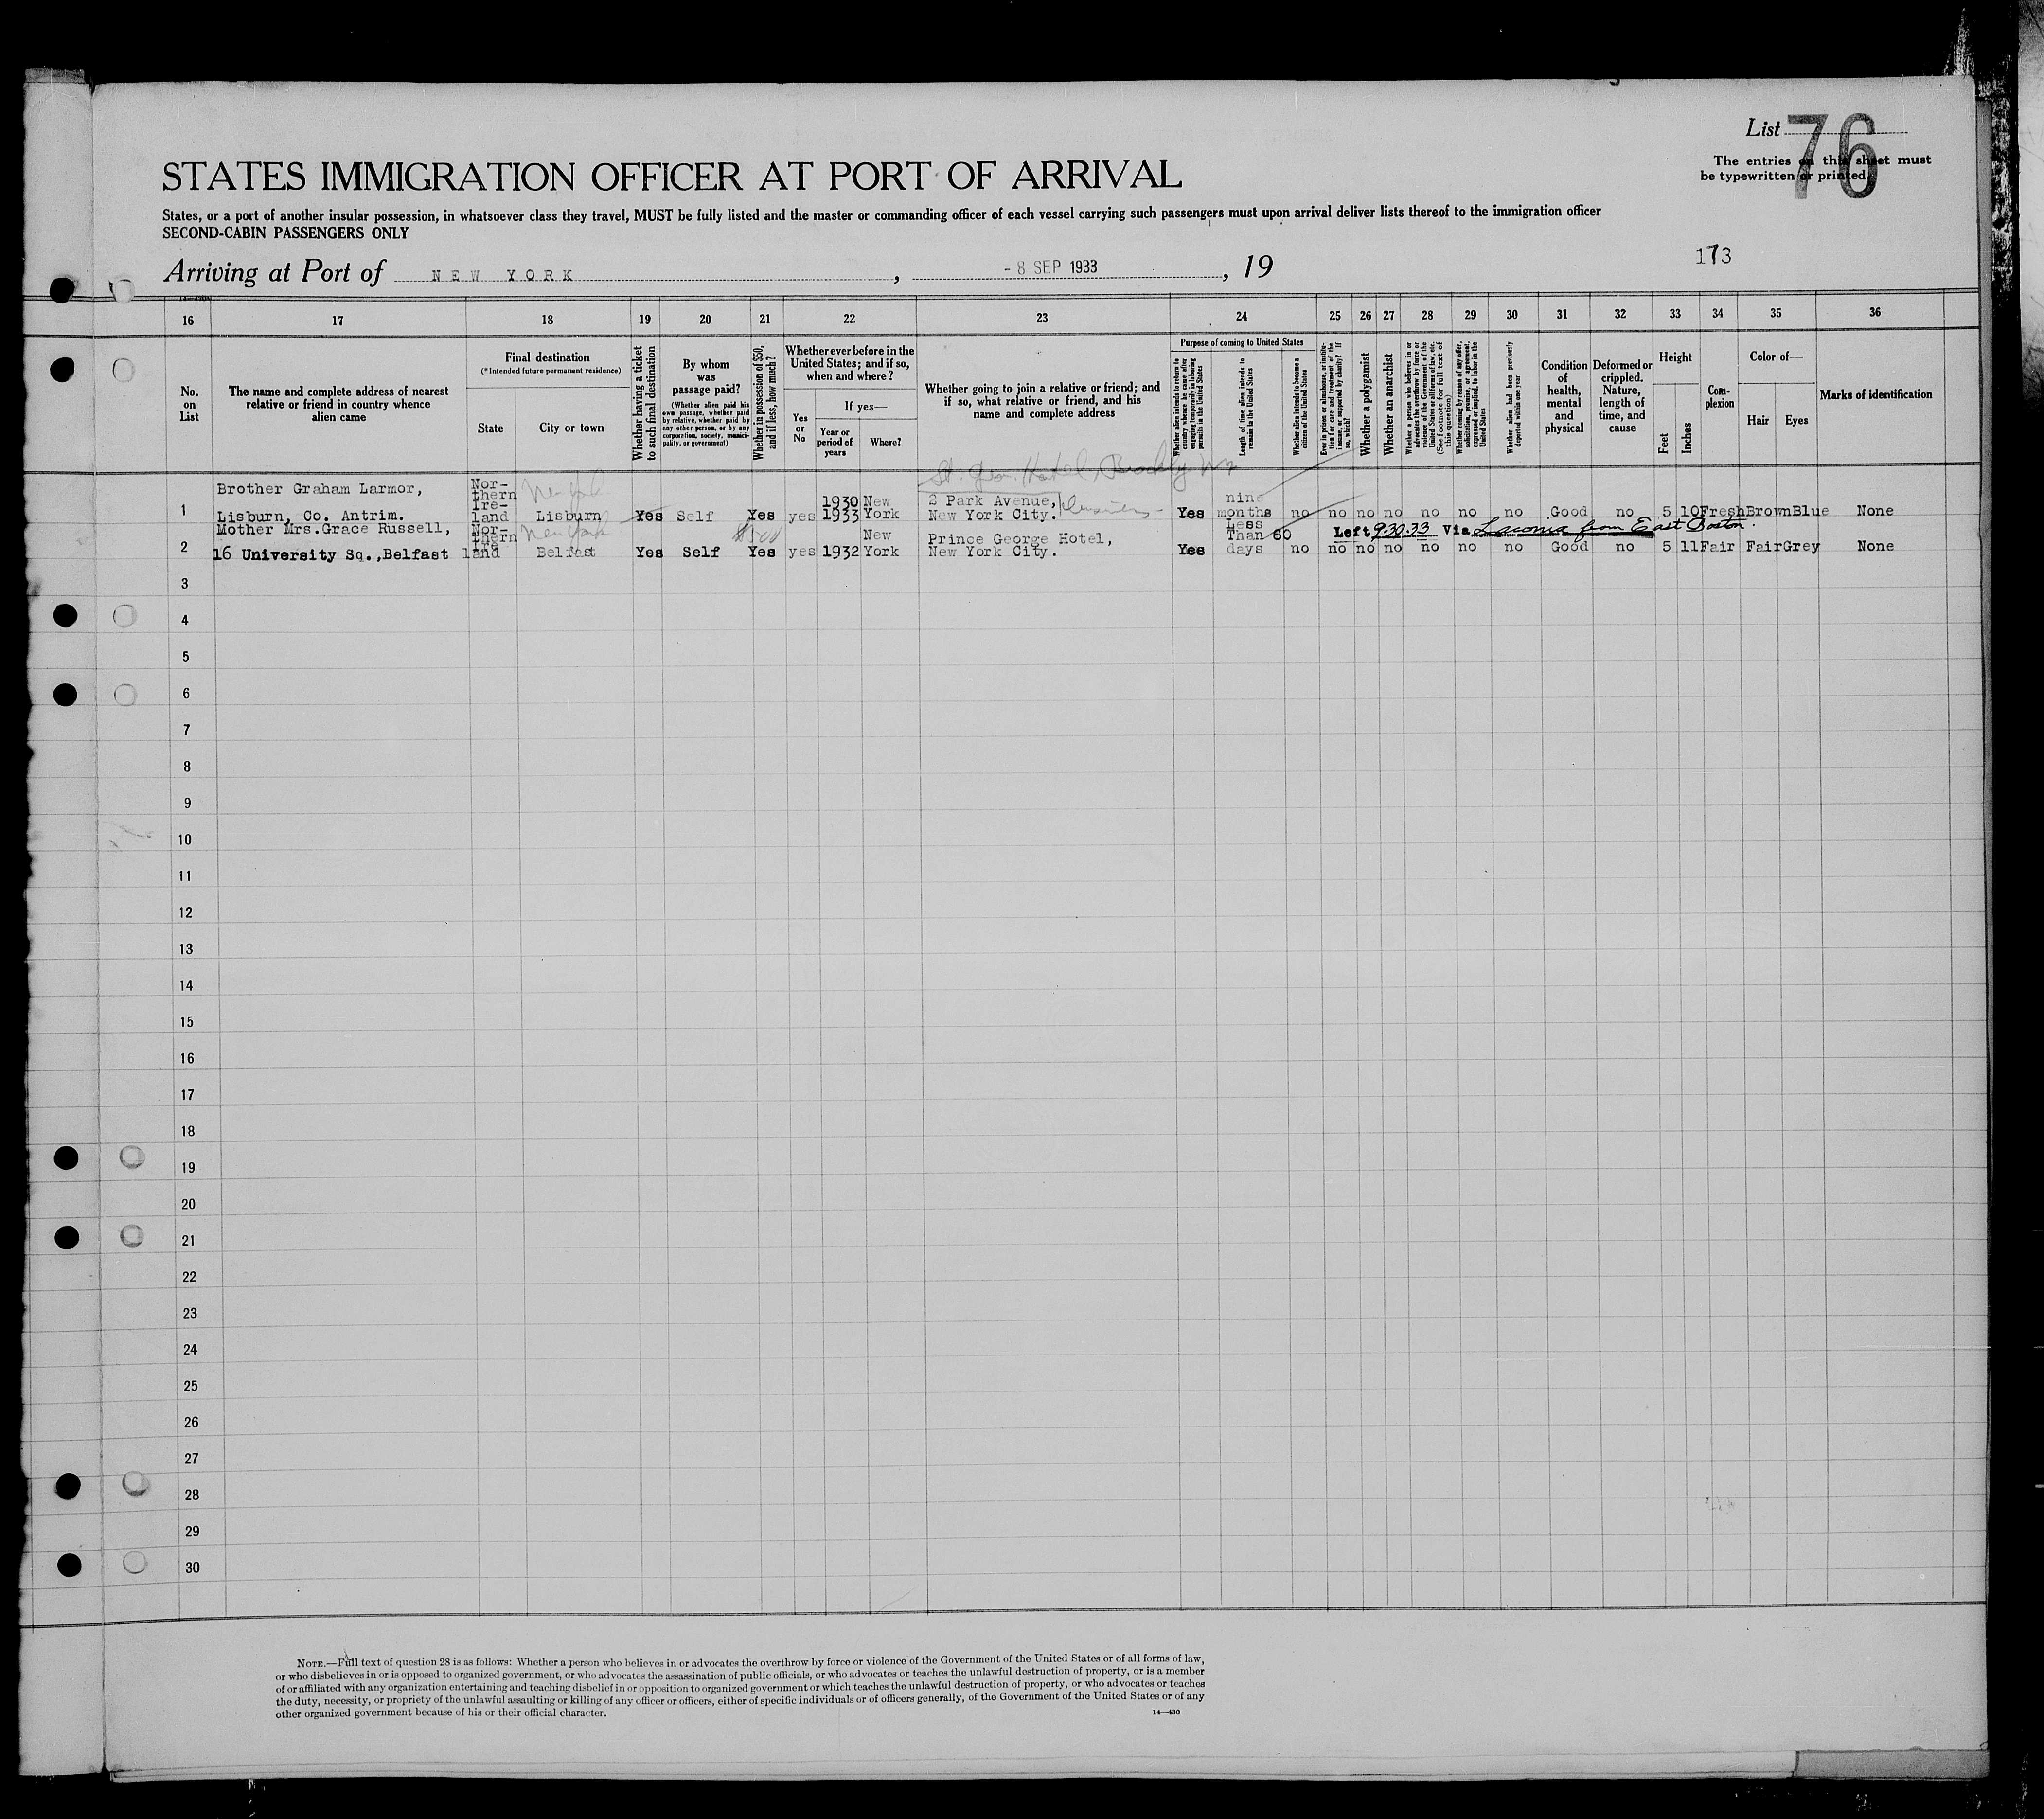 List 76
The entries on this sheet must
be typewritten or printed.
STATES IMMIGRATION OFFICER AT PORT OF ARRIVAL
States, or a port of another insular possession, in whatsoever class they travel, MUST be fully listed and the master or commanding officer of each vessel carrying such passengers must upon arrival deliver lists thereof to the immigration officer
SECOND-CABIN PASSENGERS ONLY
173
Arriving at Port of NEW YORK, - 8 SEP 1933, 19
16 17 18 19 20 21 22 23 24 25 26 27 28 29 30 31 32 33 34 35 36
No. on List
The name and complete address of nearest relative or friend in country whence alien came
Final destination
(*Intended future permanent residence)
State
City or town
Whether having a ticket to such final destination
By whom was passage paid?
(Whether alien paid his own passage, whether paid by relative, whether paid by any other person, or by any corporation, society, municipality, or government)
Whether in possession of $50, and if less, how much?
Whether ever before in the United States; and if so, when and where?
Yes or No
If yes—
Year or period of years
Where?
Whether going to join a relative or friend; and if so, what relative or friend, and his name and complete address
Purpose of coming to United States
Whether alien intends to return to country whence he came after engaging temporarily in laboring pursuits in the United States
Length of time alien intends to remain in the United States
Whether alien intends to become a citizen of the United States
Ever in prison or almshouse, or institution for care and treatment of the insane, or supported by charity? If so, which?
Whether a polygamist
Whether an anarchist
Whether a person who believes in or advocates the overthrow by force or violence of the Government of the United States or all forms of law, etc. (See footnote for full text of this question)
Whether coming by reason of any offer, solicitation, promise, or agreement, expressed or implied, to labor in the United States
Whether alien had been previously deported within one year
Condition of health, mental and physical
Deformed or crippled. Nature, length of time, and cause
Height
Feet
Inches
Complexion
Color of—
Hair
Eyes
Marks of identification
St. Geo. Hotel, Brooklyn NY
1 Brother Graham Larmor, Lisburn, Co. Antrim. Northern Ireland New York Lisburn Yes Self Yes yes 1930 1933 New York 2 Park Avenue, New York City. Yes nine months no no no no no no no Good no 5 10 Fresh Brown Blue None
Left 9-30-33 Via Laconia from East Boston.
2 Mother Mrs.Grace Russell, 16 University Sq.,Belfast Northern land New York Belfast Yes Self $500 Yes yes 1932 New York Prince George Hotel, New York City. Yes Less Than 60 days no no no no no no no Good no 5 11 Fair Fair Grey None
3
4
5
6
7
8
9
10
11
12
13
14
15
16
17
18
19
20
21
22
23
24
25
26
27
28
29
30
NOTE.—Full text of question 28 is as follows: Whether a person who believes in or advocates the overthrow by force or violence of the Government of the United States or of all forms of law,
or who disbelieves in or is opposed to organized government, or who advocates the assassination of public officials, or who advocates or teaches the unlawful destruction of property, or is a member
of or affiliated with any organization entertaining and teaching disbelief in or opposition to organized government or which teaches the unlawful destruction of property, or who advocates or teaches
the duty, necessity, or propriety of the unlawful assaulting or killing of any officer or officers, either of specific individuals or of officers generally, of the Government of the United States or of any
other organized government because of his or their official character.
14—430